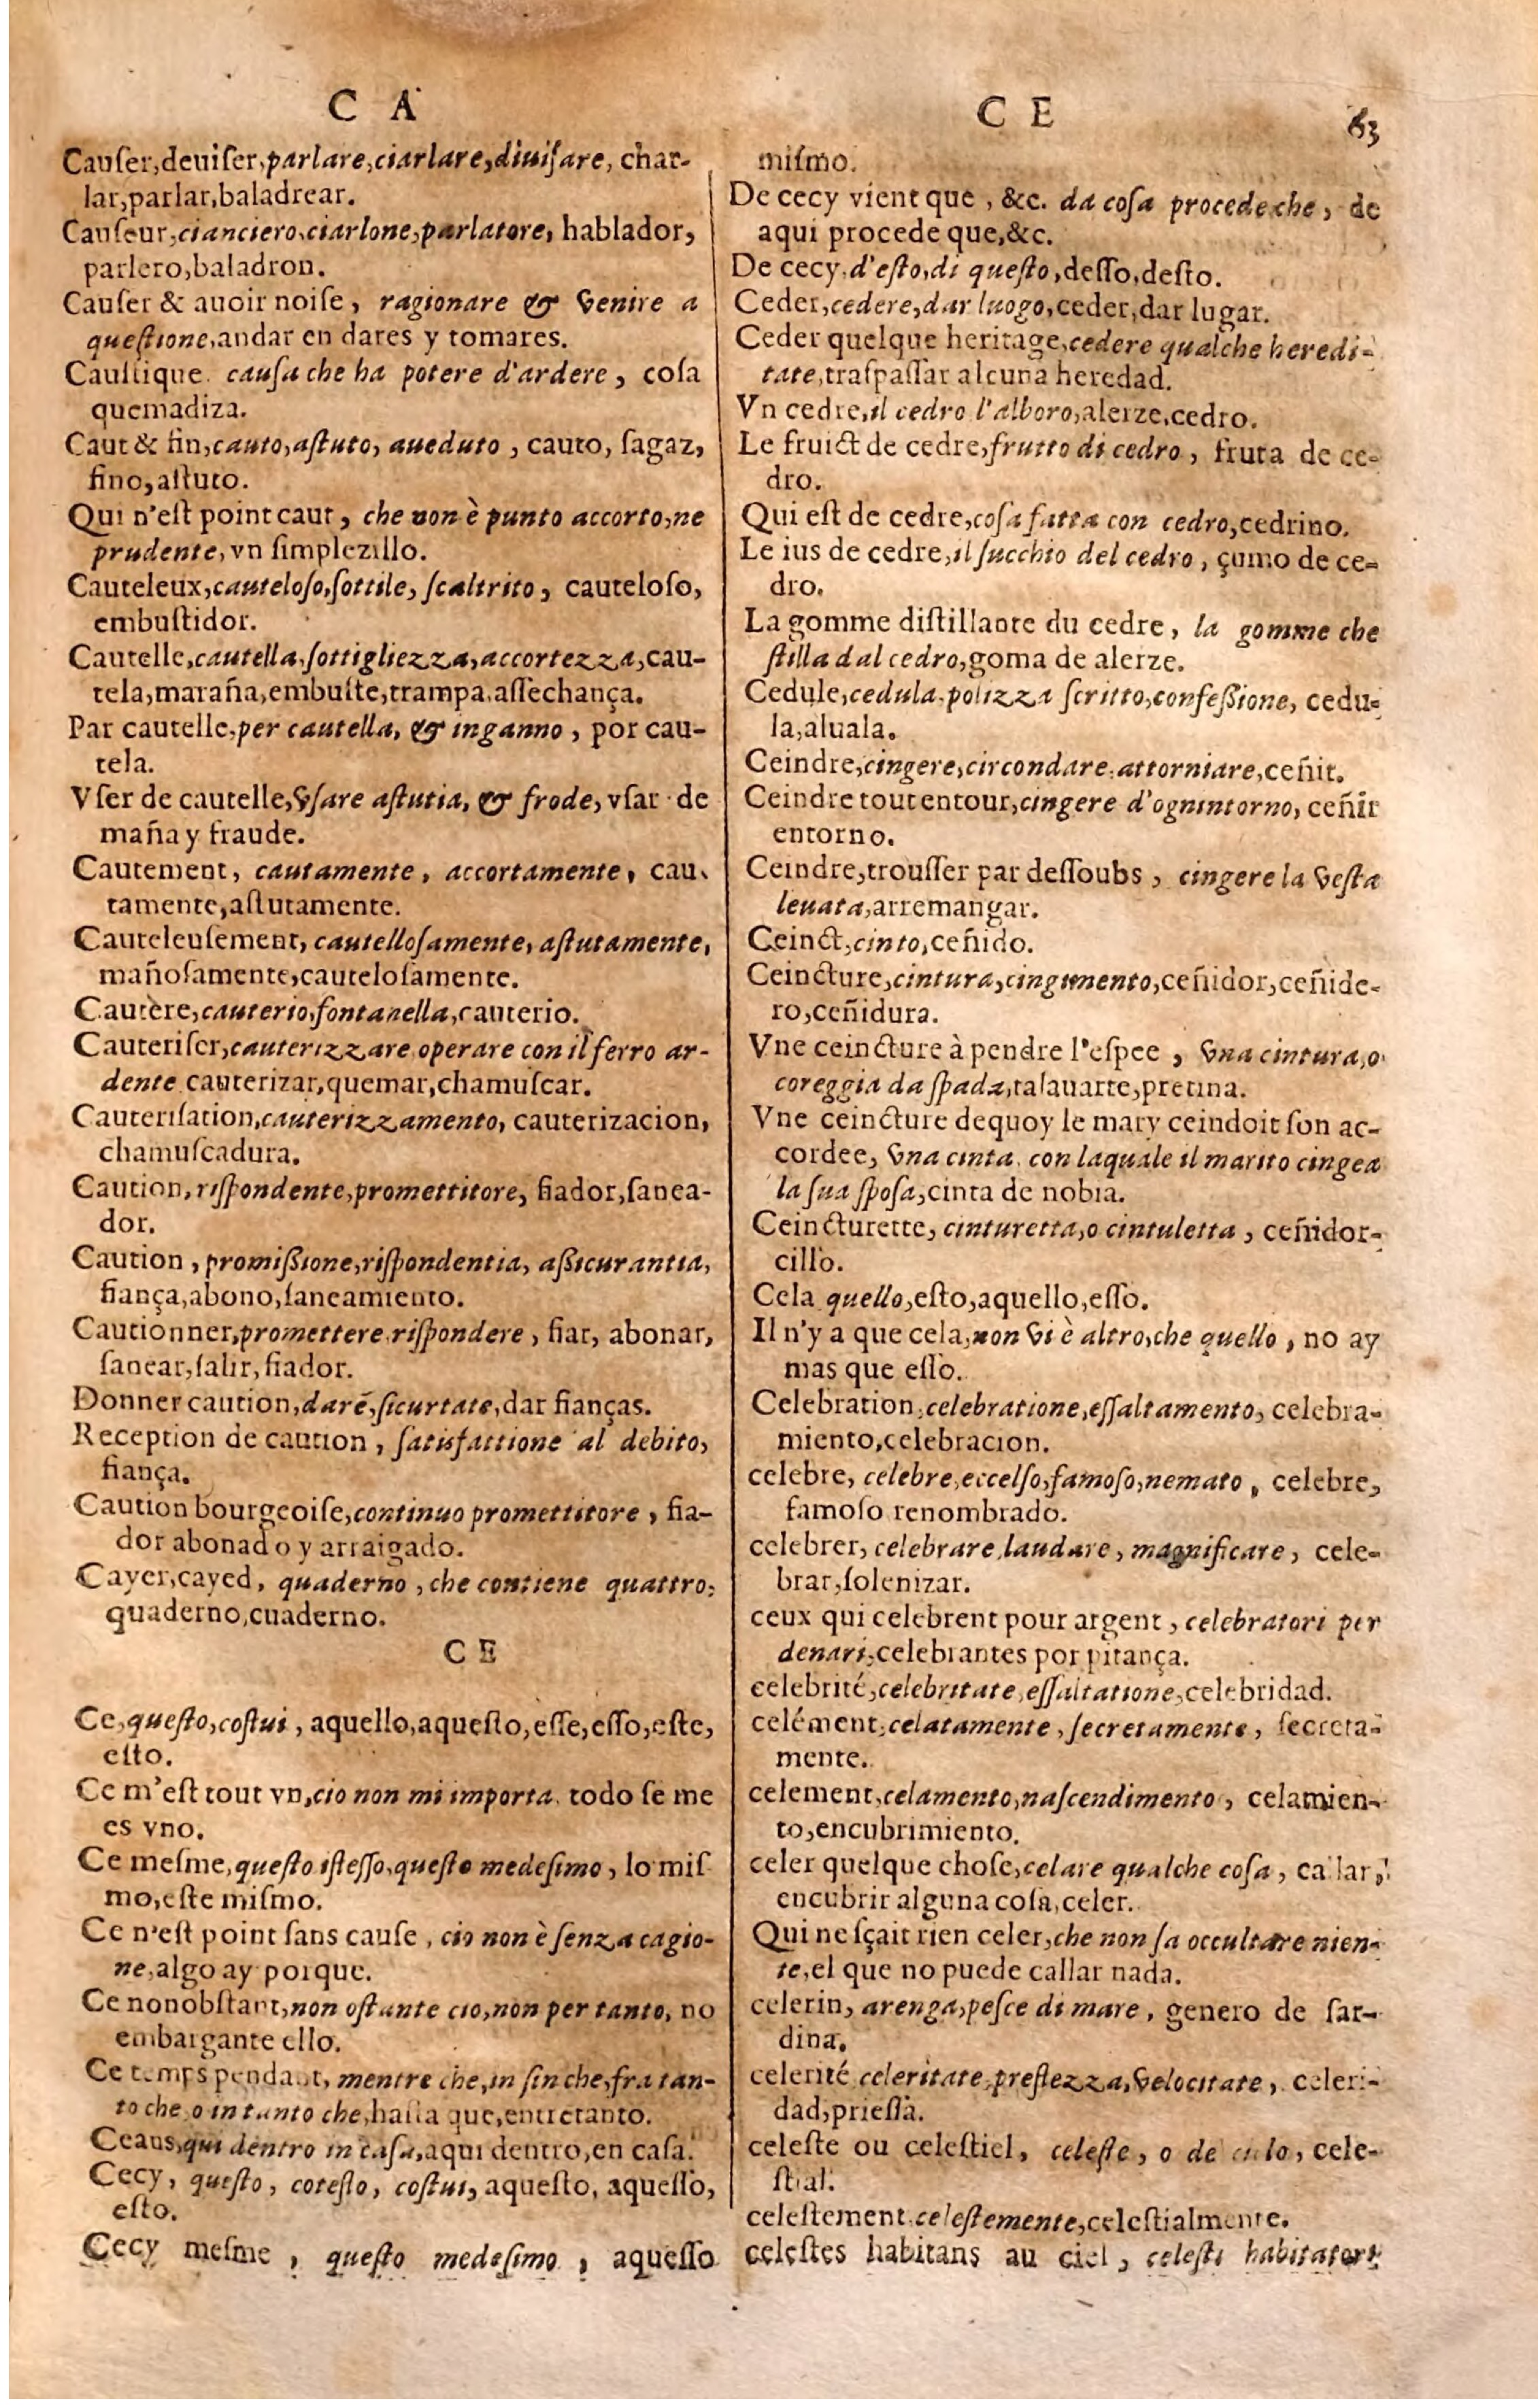 C A
Cauſer,deuiſer,parlare,ciarlare,diuiſare, char-
lar,parlar,baladrear.
Cauſeur,cianciero,ciarlone,parlatore, hablador,
parlero,baladron.
Cauſer & auoir noiſe, ragionare & venire a
queſtione,andar en dares y tomares.
Cauſtique cauſa che ha potere d'ardere, coſa
quemadiza.
Caut & fin,cauto,aſtuto, aueduto, cauto, ſagaz,
fino,aſtuto.
Qui n'eſt point caut, che non è punto accorto,ne
prudente,vn ſimplezillo.
Cauteleux,cauteloſo,ſottile, ſcaltrito, cauteloſo,
embuſtidor.
Cautelle,cautella,ſottigliezza,accortezza,cau-
tela,maraña,embuſte,trampa,aſſechança.
Par cautelle,per cautella, & inganno, por cau-
tela.
Vſer de cautelle,vſare aſtutia, & frode, vſar de
maña y fraude.
Cautement, cautamente, accortamente, cau-
tamente,aſtutamente.
Cauteleuſement, cautelloſamente, aſtutamente,
mañoſamente,cauteloſamente.
Cautère,cauterio,fontanella,cauterio.
Cauteriſer,cauterizzare operare con il ferro ar-
dente cauterizar,quemar,chamuſcar.
Cauteriſation,cauterizzamento, cauterizacion,
chamuſcadura.
Caution,riſpondente,promettitore, fiador,ſanea-
dor.
Caution, promißione,riſpondentia, aßicurantia,
fiança,abono,ſaneamiento.
Cautionner,promettere riſpondere, fiar, abonar,
ſanear,ſalir,fiador.
Donner caution,dare,ſicurtate,dar fianças.
Reception de caution, ſatisfattione al debito,
fiança.
Caution bourgeoiſe,continuo promettitore, fia-
dor abonado y arraigado.
Cayer,cayed, quaderno, che contiene quattro,
quaderno,cuaderno.
C E
Ce,queſto,coſtui, aquello,aqueſto,eſſe,eſſo,eſte,
eſto.
Ce m'eſt tout vn,cio non mi importa. todo ſe me
es vno.
Ce meſme,queſto iſteſſo,queſto medeſimo, lo miſ
mo,eſte miſmo.
Ce n'eſt point ſans cauſe, cio non è ſenza cagio-
ne,algo ay porque.
Ce nonobſtant,non oſtante cio,non per tanto, no
embargante ello.
Ce temps pendant, mentre che,in fin che,fra tan-
to che,o in tanto che,haſta que,entretanto.
Ceans,qui dentro in caſa,aqui dentro,en caſa.
Cecy, queſto, coteſto, coſtui, aqueſto, aqueſſo,
eſto.
Cecy meſme, queſto medeſimo, aqueſſo
C E
63
miſmo.
De cecy vient que, &c. da coſa procede che, de
aqui procede que,&c.
De cecy,d'eſto,di queſto,deſſo,deſto.
Ceder,cedere,dar luogo,ceder,dar lugar.
Ceder quelque heritage,cedere qualche heredi-
tate,traſpaſſar alcuna heredad.
Vn cedre,il cedro l'alboro,alerze,cedro.
Le fruict de cedre,frutto di cedro, fruta de ce-
dro.
Qui eſt de cedre,coſa fatta con cedro,cedrino.
Le ius de cedre,il ſucchio del cedro, çumo de ce-
dro.
La gomme diſtillante du cedre, la gomme che
ſtilla dal cedro,goma de alerze.
Cedule,cedula,polizza ſcritto,confeßione, cedu-
la,aluala.
Ceindre,cingere,circondare,attorniare,ceñir.
Ceindre tout entour,cingere d'ognintorno, ceñir
entorno.
Ceindre,trouſſer par deſſoubs, cingere la veſta
leuata,arremangar.
Ceinct,cinto,ceñido.
Ceincture,cintura,cingimento,ceñidor,ceñide-
ro,ceñidura.
Vne ceincture à pendre l'eſpee, vna cintura,o
coreggia da ſpada,talauarte,pretina.
Vne ceincture dequoy le mary ceindoit ſon ac-
cordee, vna cinta con laquale il marito cingea
la ſua ſpoſa,cinta de nobia.
Ceincturette, cinturetta,o cintuletta, ceñidor-
cillo.
Cela quello,eſto,aquello,eſſo.
Il n'y a que cela,non vi è altro,che quello, no ay
mas que eſſo.
Celebration,celebratione,eſſaltamento, celebra-
miento,celebracion.
celebre, celebre,eccelſo,famoſo,nemato, celebre,
famoſo renombrado.
celebrer, celebrare,laudare, magnificare, cele-
brar,ſolenizar.
ceux qui celebrent pour argent, celebratori per
denari,celebrantes por pitança.
celebrité,celebritate,eſſaltatione,celebridad.
celément,celatamente, ſecretamente, ſecreta-
mente.
celement,celamento,naſcendimento, celamien-
to,encubrimiento.
celer quelque choſe,celare qualche coſa, callar,
encubrir alguna coſa,celer.
Qui ne ſçait rien celer,che non ſa occultare nien-
te,el que no puede callar nada.
celerin, arenga,peſce di mare, genero de ſar-
dina.
celerité celeritate,preſtezza,velocitate, celeri-
dad,prieſſa.
celeſte ou celeſtiel, celeſte, o de culo, cele-
ſtial.
celeſtement,celeſtemente,celeſtialmente.
celeſtes habitans au ciel, celeſti habitatori